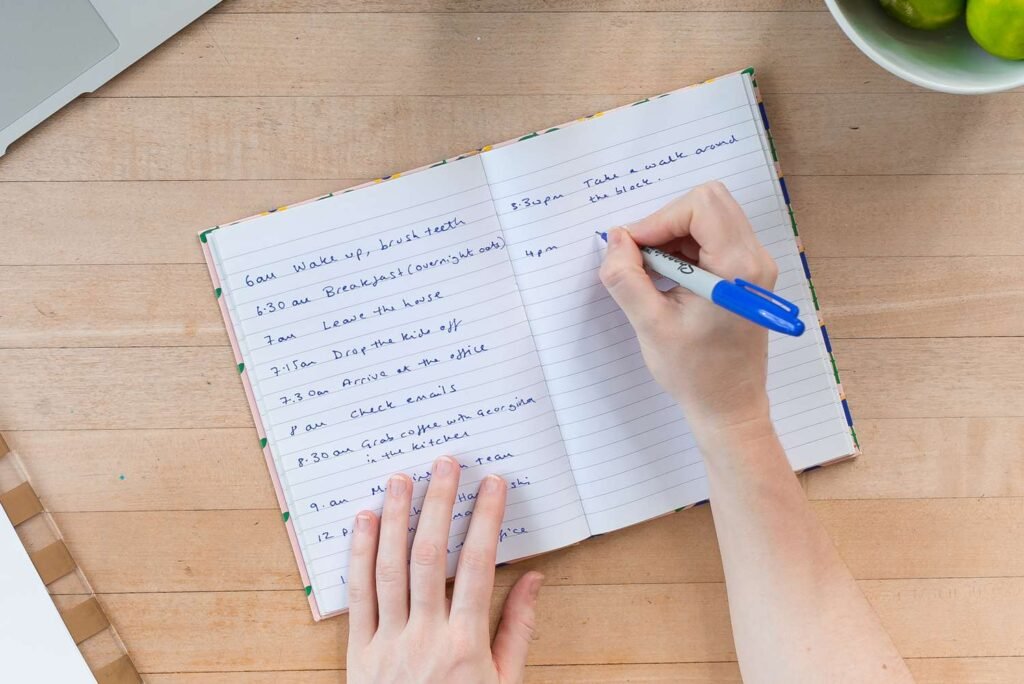 6am Wake up, brush teeth
6:30 am Breakfast (overnight oats)
7am Leave the house
7.15am Drop the kids off
7.30am Arrive at the office
8 am check emails
8:30 am Grab coffee with Georgina
in the kitchen
9. am team
12
office
3.30pm Take a walk around
the block.
4pm
Sharpie